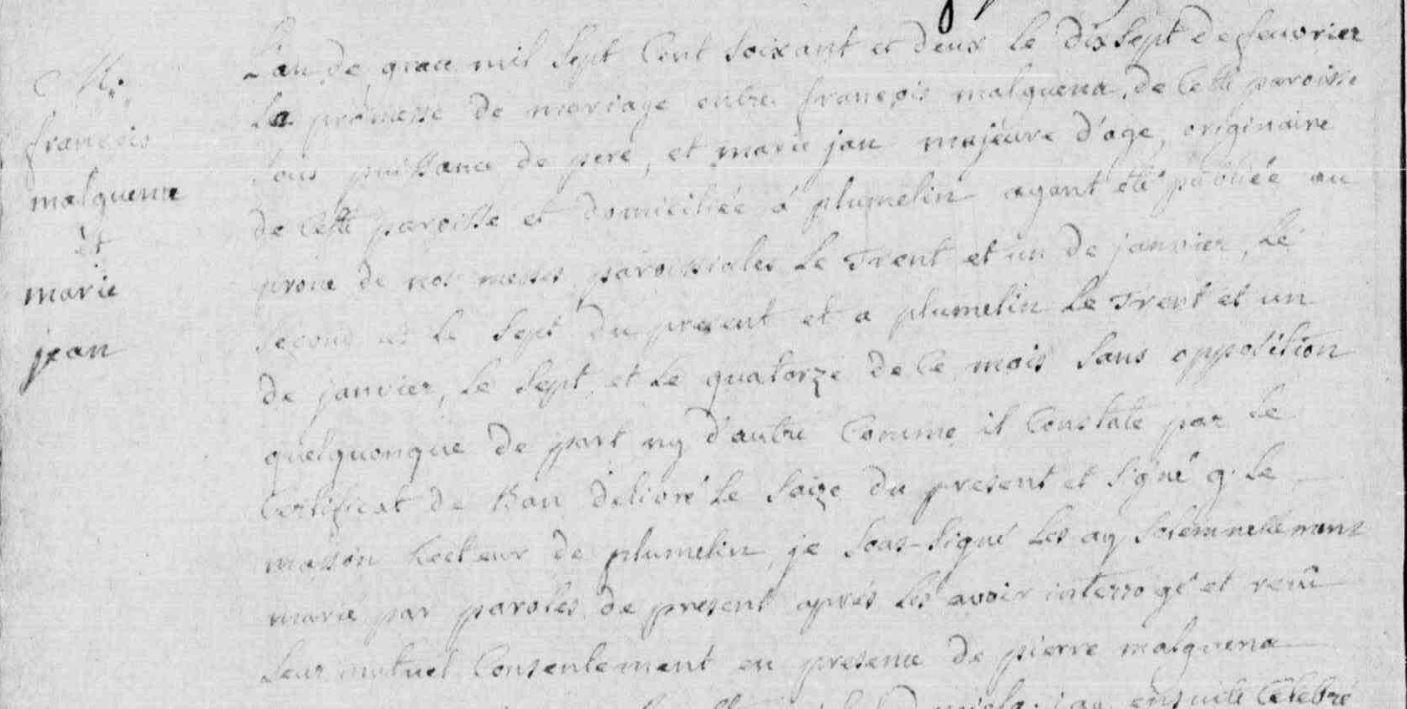 M.
françois
malquena
et
marie
jean
L'an de grace mil Sept Cent Soixant et deux le dix Sept de feuvrier
La promesse de mariage entre françois malquena, de Cette paroisse
sous puissance de pere, et marie jan majeure d'age, originaire
de Cette paroisse et domiciliée à plumelin ayant été publiée au
prone de nos messes paroissiales Le Trent et un de janvier, Le
Second et Le Sept du present et a plumelin Le Trent et un
de janvier, Le Sept et Le quatorze de Ce mois Sans opposition
quelquonque de part ny d'autre Comme il Constate par Le
Certificat de Ban délivré Le Saize du present et Signé g. Le
masson Recteur de plumelin, je Sous-Signé Les ay Solemnellement
marié par paroles de present aprés Les avoir interrogé et reçû
Leur mutuel Consentement en presence de pierre malquena
ensuite Célebré